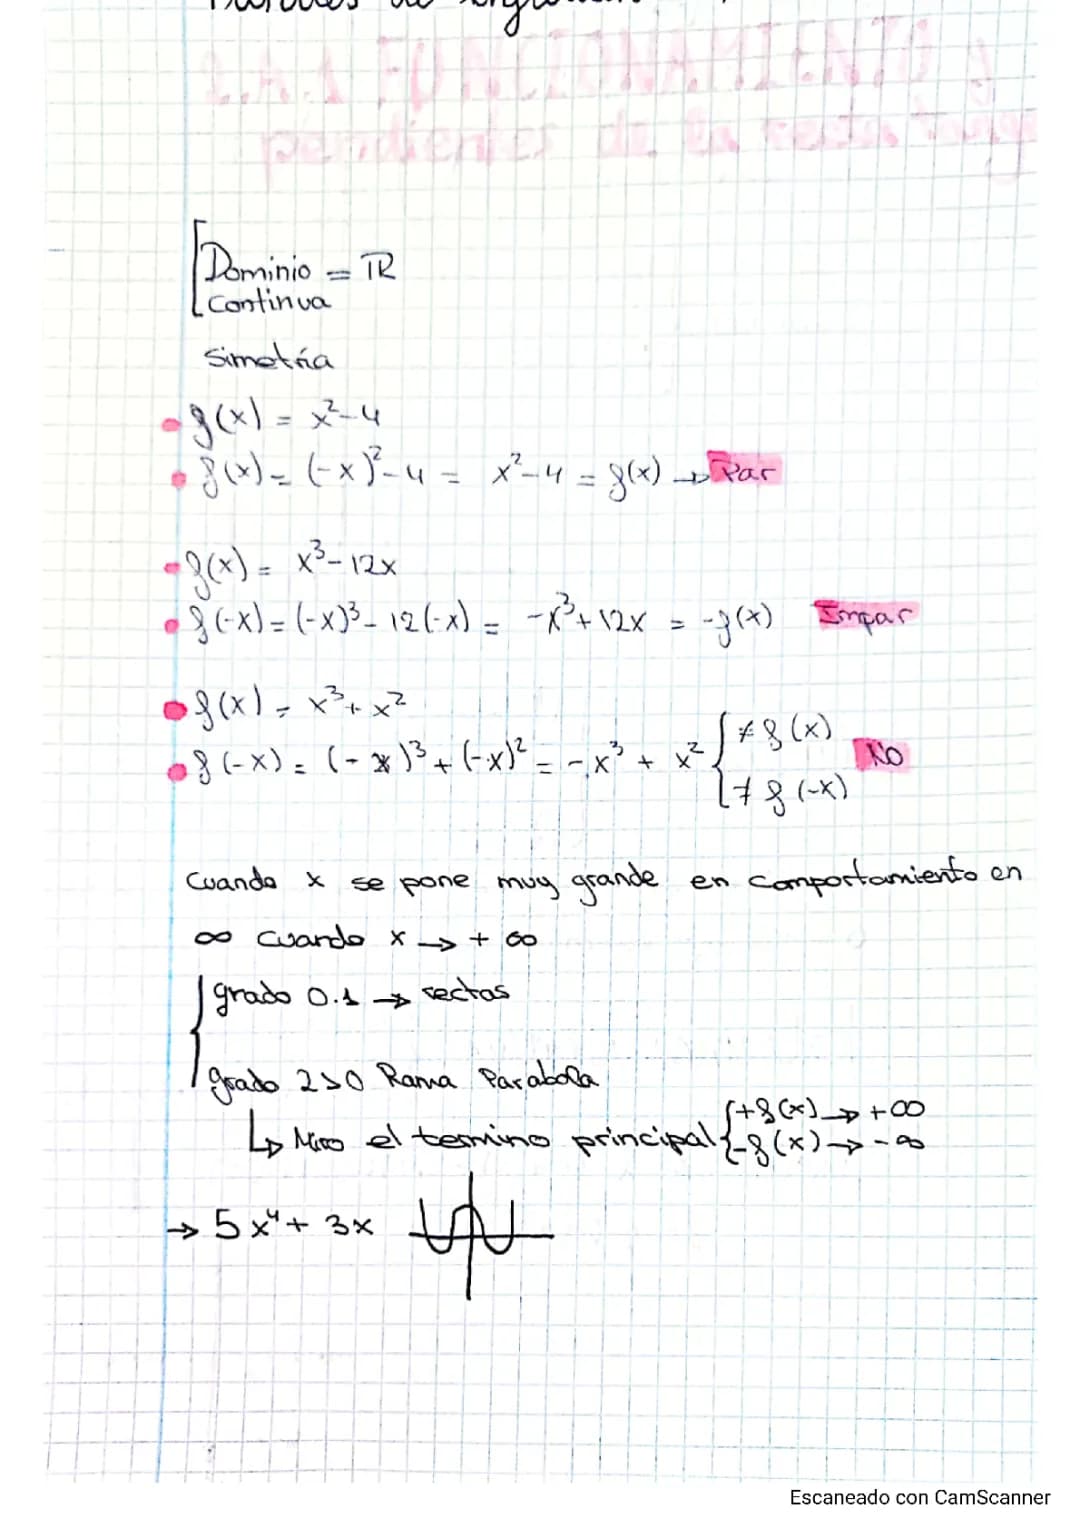 Dominio = ℝ
Continua
Simetría
f(x) = x²-4
f(x) = (-x)²-4 = x²-4 = f(x) → Par
f(x) = x³-12x
f(-x) = (-x)³-12(-x) = -x³+12x = -f(x) Impar
f(x) = x³+x²
f(-x) = (-x)³+(-x)² = -x³+x² { ≠ f(x)
≠ f(-x) No
Cuando x se pone muy grande en comportamiento en
∞ cuando x → + ∞
grado 0.1 → rectas
grado 2>0 Rama Parabola
↳ Miro el termino principal { +f(x) → +∞
-f(x) → -∞
→ 5x⁴+ 3x
Escaneado con CamScanner